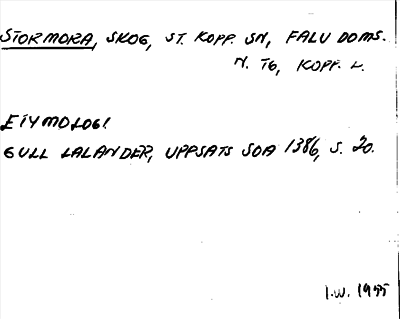 STORMORA, SKOG, ST. KOPP. SN, FALU DOMS.
N. TG, KOPP. L.
ETYMOLOGI:
GULL LALANDER, UPPSATS SOA 1386, S. 20.
I.W. 1955